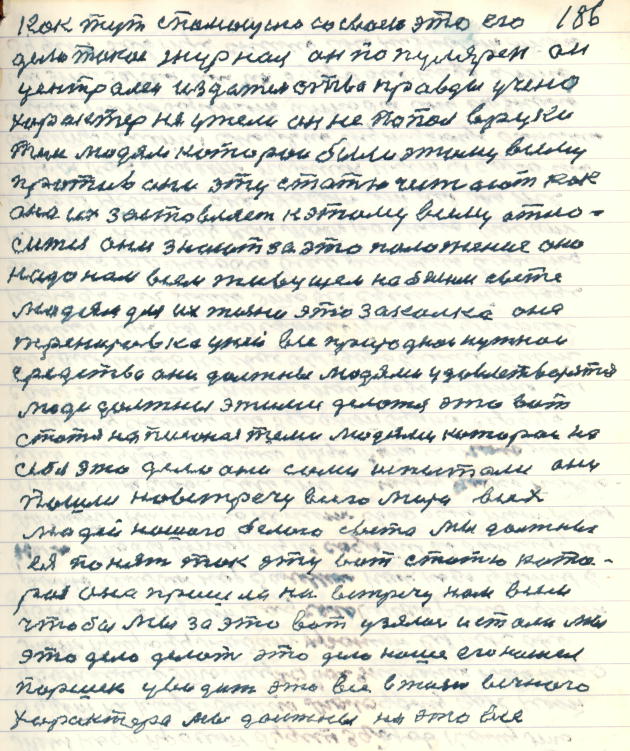 186
Как тут спомощью со своем это его
дело такое журнал он популярен он
централен издательства правды учено
характер неужели он не попал в руки
тым людям которои были этому всему
против они эту статю читают как
она их заставляет к этому всему отно-
ситя они знают за это положение оно
надо нам всем живущем на белым свете
людям для их жизни это закалка она
тренировка у ней все природное нужнои
средства они должны людями удовлетворятя
люди должны этими делотя это вот
статя написоная теми людями которои на
себя это дело они сами испытали они
пошли навстречу всего мира всех
людей нашого белого света мы должны
ея понят так эту вот статю кото-
рая она пришла на встречу нам всем
чтобы мы за это вот узялис и стали мы
это дело делат это дело наше его нашел
Паршек уводит это все в жизн вечного
характера мы должны на это все